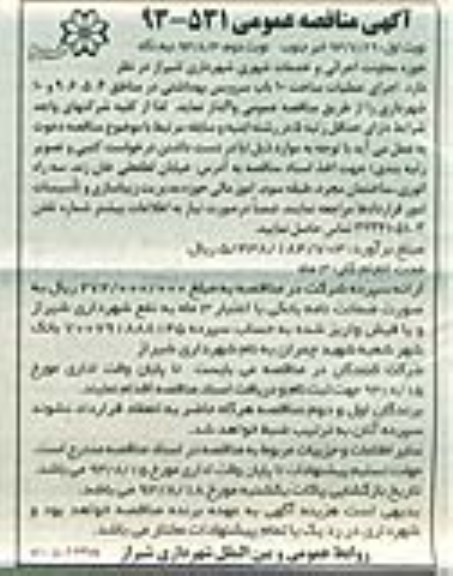 آگهی مناقصه عمومی ۵۳۱-۹۳
حوزه معاونت اجرائی و خدمات شهری شهرداری شیراز در نظر
دارد اجرای عملیات ساخت ۱۰ باب سرویس بهداشتی در مناطق
شهرداری را از طریق مناقصه عمومی واگذار نماید. لذا از کلیه شرکتهای واجد
شرایط دارای حداقل رتبه ۵ در رشته ابنیه و سابقه مرتبط با موضوع مناقصه دعوت
به عمل می آید با توجه به موارد ذیل با در دست داشتن درخواست کتبی و تصویر
رتبه بندی جهت اخذ اسناد مناقصه به آدرس: خیابان لطفعلی خان زند سه راه
انوری ساختمان طبقه سوم، امور مالی حوزه مدیریت زیباسازی و تأسیسات
امور قراردادها مراجعه نمایند. ضمنا در صورت نیاز به اطلاعات بیشتر شماره تلفن
تماس حاصل نمایید.
مبلغ برآورد: ریال
مدت انجام کار: ۳ ماه
ارائه سپرده شرکت در مناقصه به مبلغ ۲۷۲/۰۰۰/۰۰۰ ریال به
صورت ضمانت نامه بانکی با اعتبار ۳ ماه به نفع شهرداری شیراز
و یا فیش واریز شده به حساب سپرده بانک
شهر شعبه شهید چمران به نام شهرداری شیراز
شرکت کنندگان در مناقصه می بایست تا پایان وقت اداری مورخ
جهت ثبت نام و دریافت اسناد مناقصه اقدام نمایند.
برندگان اول و دوم مناقصه هرگاه حاضر به انعقاد قرارداد نشوند
سپرده آنان به ترتیب ضبط خواهد شد.
سایر اطلاعات و جزییات مربوط به مناقصه در اسناد مناقصه مندرج است.
مهلت تسلیم پیشنهادات تا پایان وقت اداری مورخ ۹۳/۸/۱۵ می باشد.
تاریخ بازگشایی پاکات یکشنبه مورخ ۹۳/۸/۱۸ می باشد.
بدیهی است هزینه آگهی به عهده برنده مناقصه خواهد بود و
شهرداری در رد یک یا تمام پیشنهادات مختار می باشد.
روابط عمومی و بین الملل شهرداری شیراز